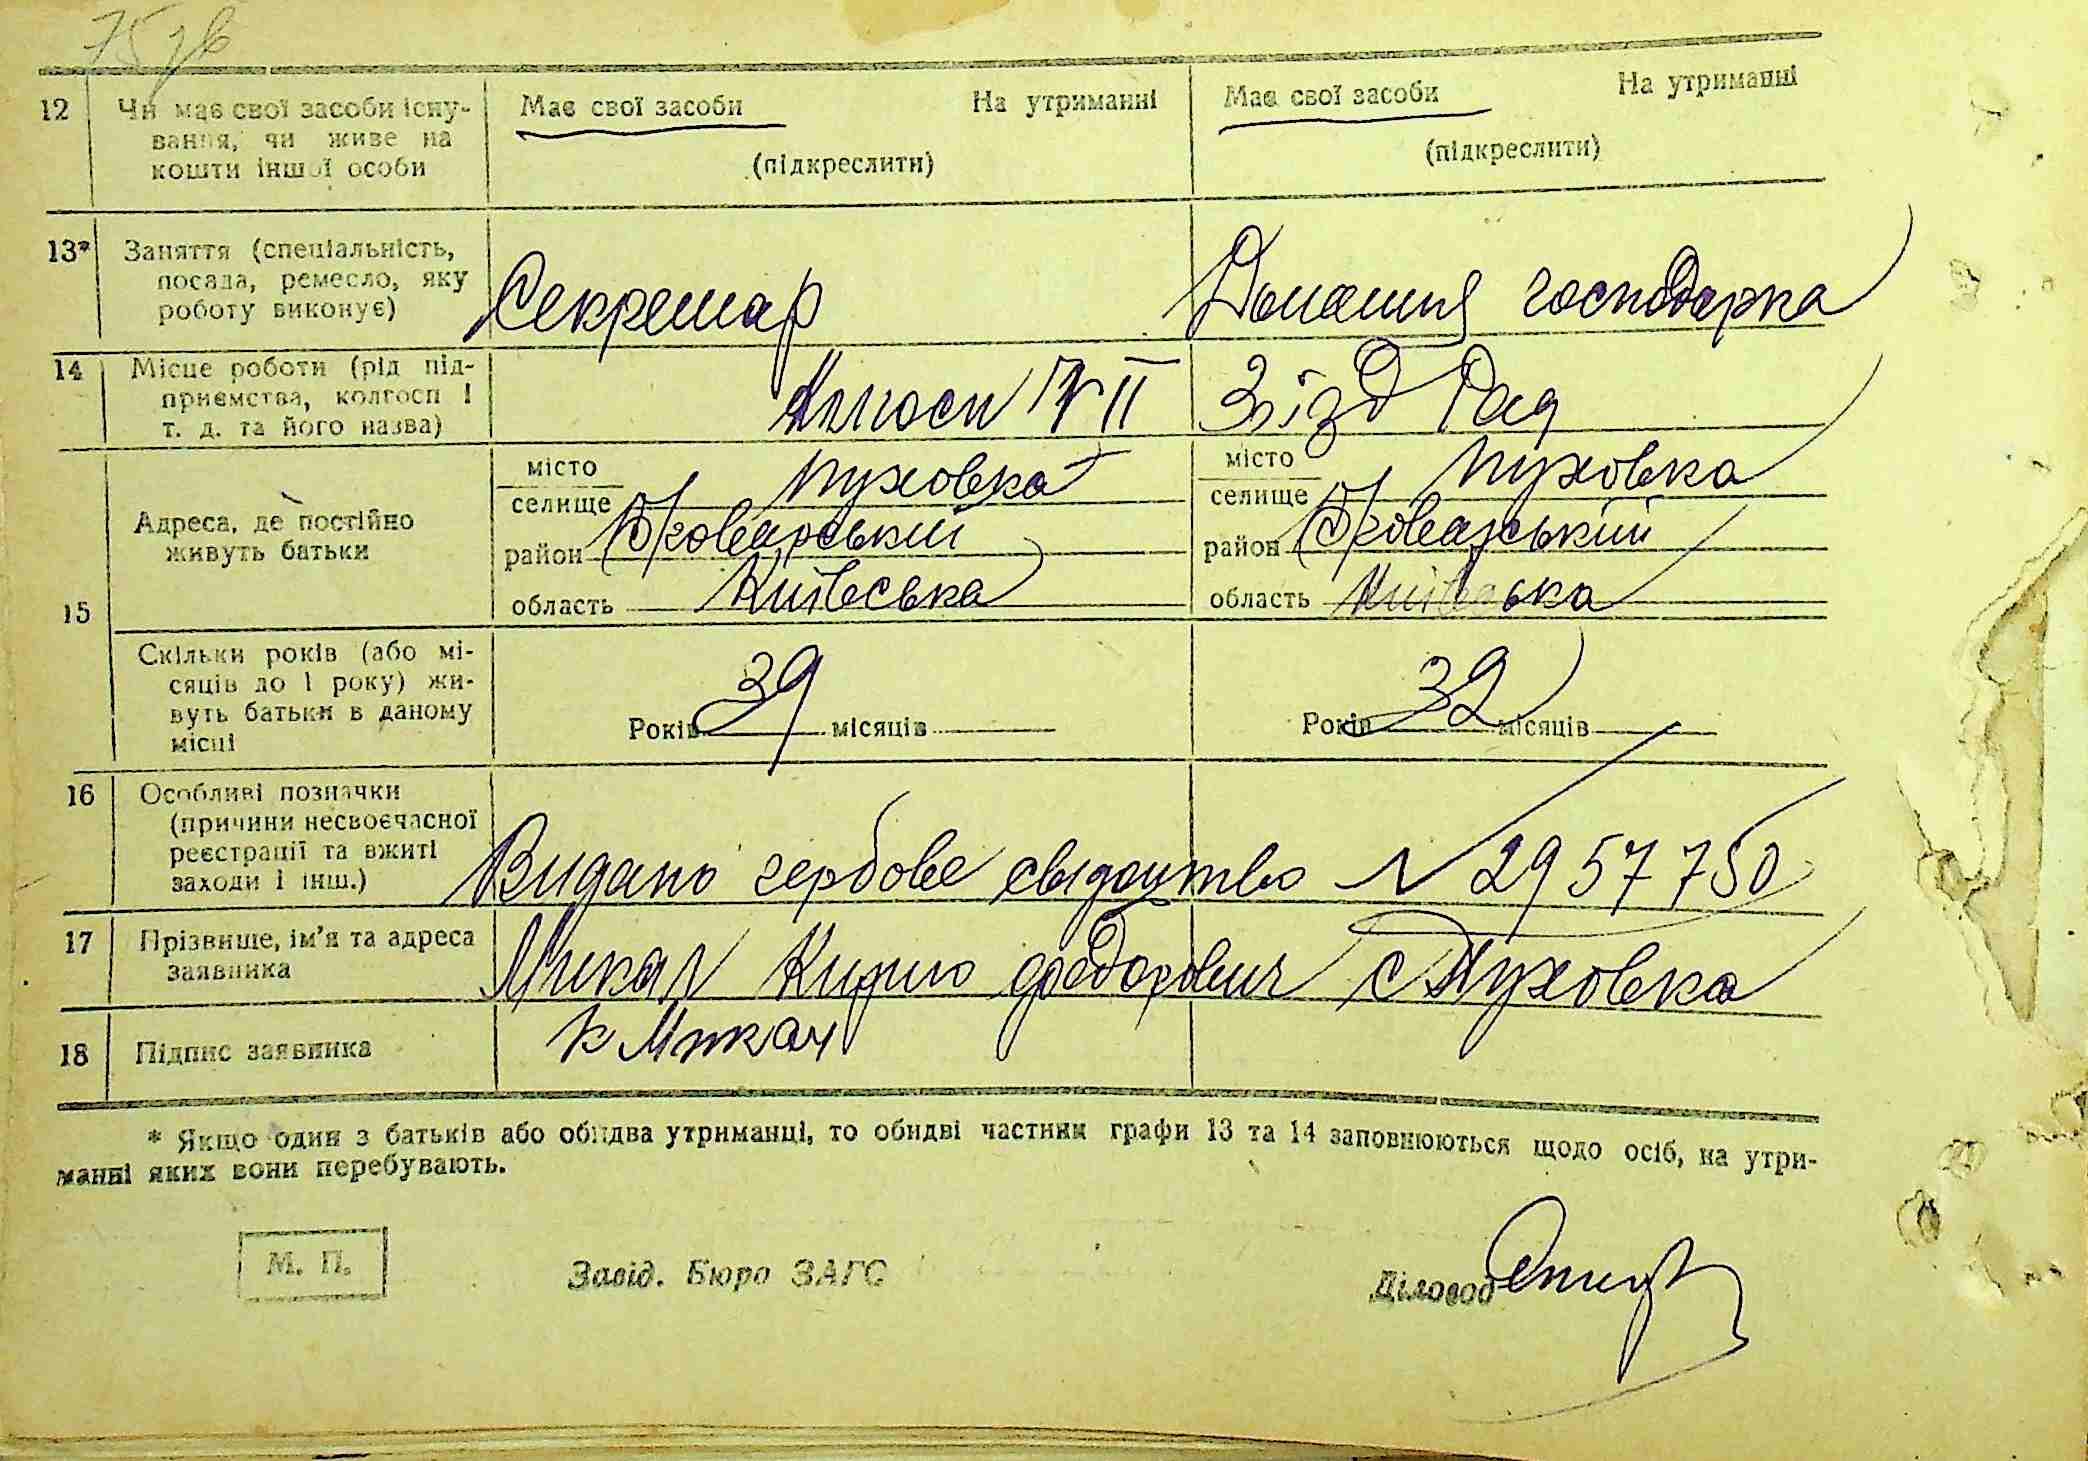 75зв
12 Чи має свої засоби існу- Має свої засоби На утриманні Має свої засоби На утриманні
вання, чи живе на (підкреслити) (підкреслити)
кошти іншої особи
13* Заняття (спеціальність,
посада, ремесло, яку Секретар Домашня господарка
роботу виконує)
14 Місце роботи (рід під-
приємства, колгосп і Колгосп VII Зїзд Рад
т. д. та його назва)
15 Адреса, де постійно
живуть батьки
місто селище Пуховка місто селище Пуховка
район Броварський район Броварський
область Київська область Київська
Скільки років (або мі-
сяців до 1 року) жи-
вуть батьки в даному Років 39 місяців Років 32 місяців
місці
16 Особливі позначки
(причини несвоєчасної
реєстрації та вжиті Видано гербове свідоцтво № 2957750
заходи і інш.)
17 Прізвище, ім'я та адреса Микал Кирило Федорович с Пуховка
заявника
18 Підпис заявника К Микал
* Якщо один з батьків або обидва утриманці, то обидві частини графи 13 та 14 заповнюються щодо осіб, на утри-
манні яких вони перебувають.
М. П. Завід. Бюро ЗАГС Діловод